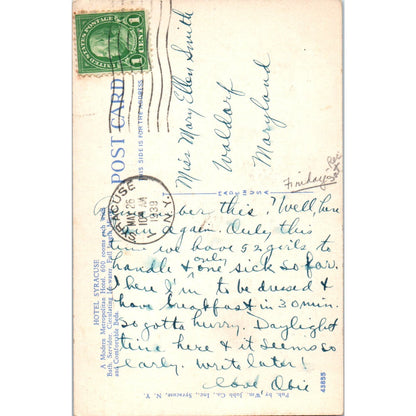 UNITED STATES POSTAGE
1 CENT 1
POST CARD
THIS SIDE IS FOR THE ADDRESS
Miss Mary Ellen Smith
Waldorf
Maryland
SYRACUSE
MAY 26
10 AM
1939
N.Y.
Friday
this? Well here
again. Only this
we have 52 girls to
handle & only one sick so far.
There I'm to be dressed &
have breakfast in 30 min.
so gotta hurry. Daylight
time here & it seems so
early. Write later!
Love Obie
HOTEL SYRACUSE
A Modern Metropolitan Hotel. 600 rooms each with
Bath, Servidor, Circulating Ice water, Full length
and Comfortable Beds.
Pub. by Wm. Jubb Co., Inc., Syracuse, N. Y.
43855